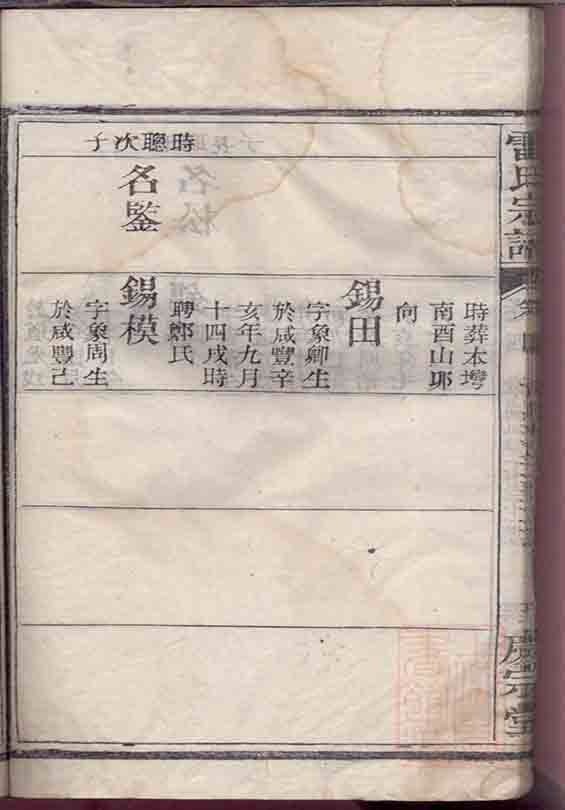 雷氏宗譜
慶宗堂
時聰次子
名鑒
時葬本塆
南酉山卯
向
錫田
字象卿生
於咸豐辛
亥年九月
十四戌時
聘鄭氏
錫模
字象周生
於咸豐己